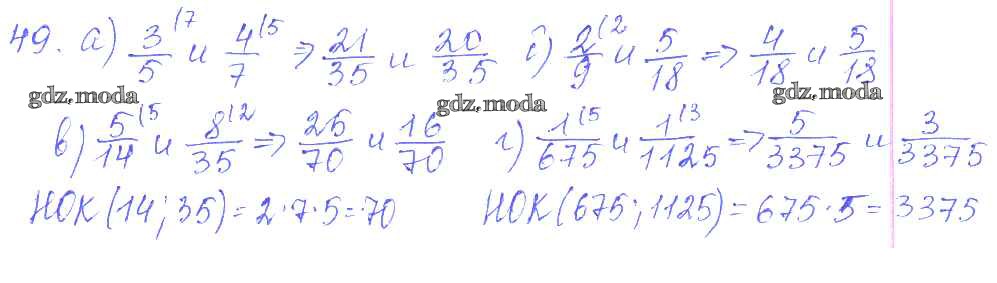 49. а) 3/5 (7 и 4/7 (5 => 21/35 и 20/35 б) 2/9 (2 и 5/18 => 4/18 и 5/18
gdz.moda gdz.moda gdz.moda
в) 5/14 (5 и 8/35 (2 => 25/70 и 16/70 г) 1/675 (5 и 1/1125 (3 => 5/3375 и 3/3375
НОК(14; 35) = 2·7·5 = 70 НОК(675; 1125) = 675·5 = 3375